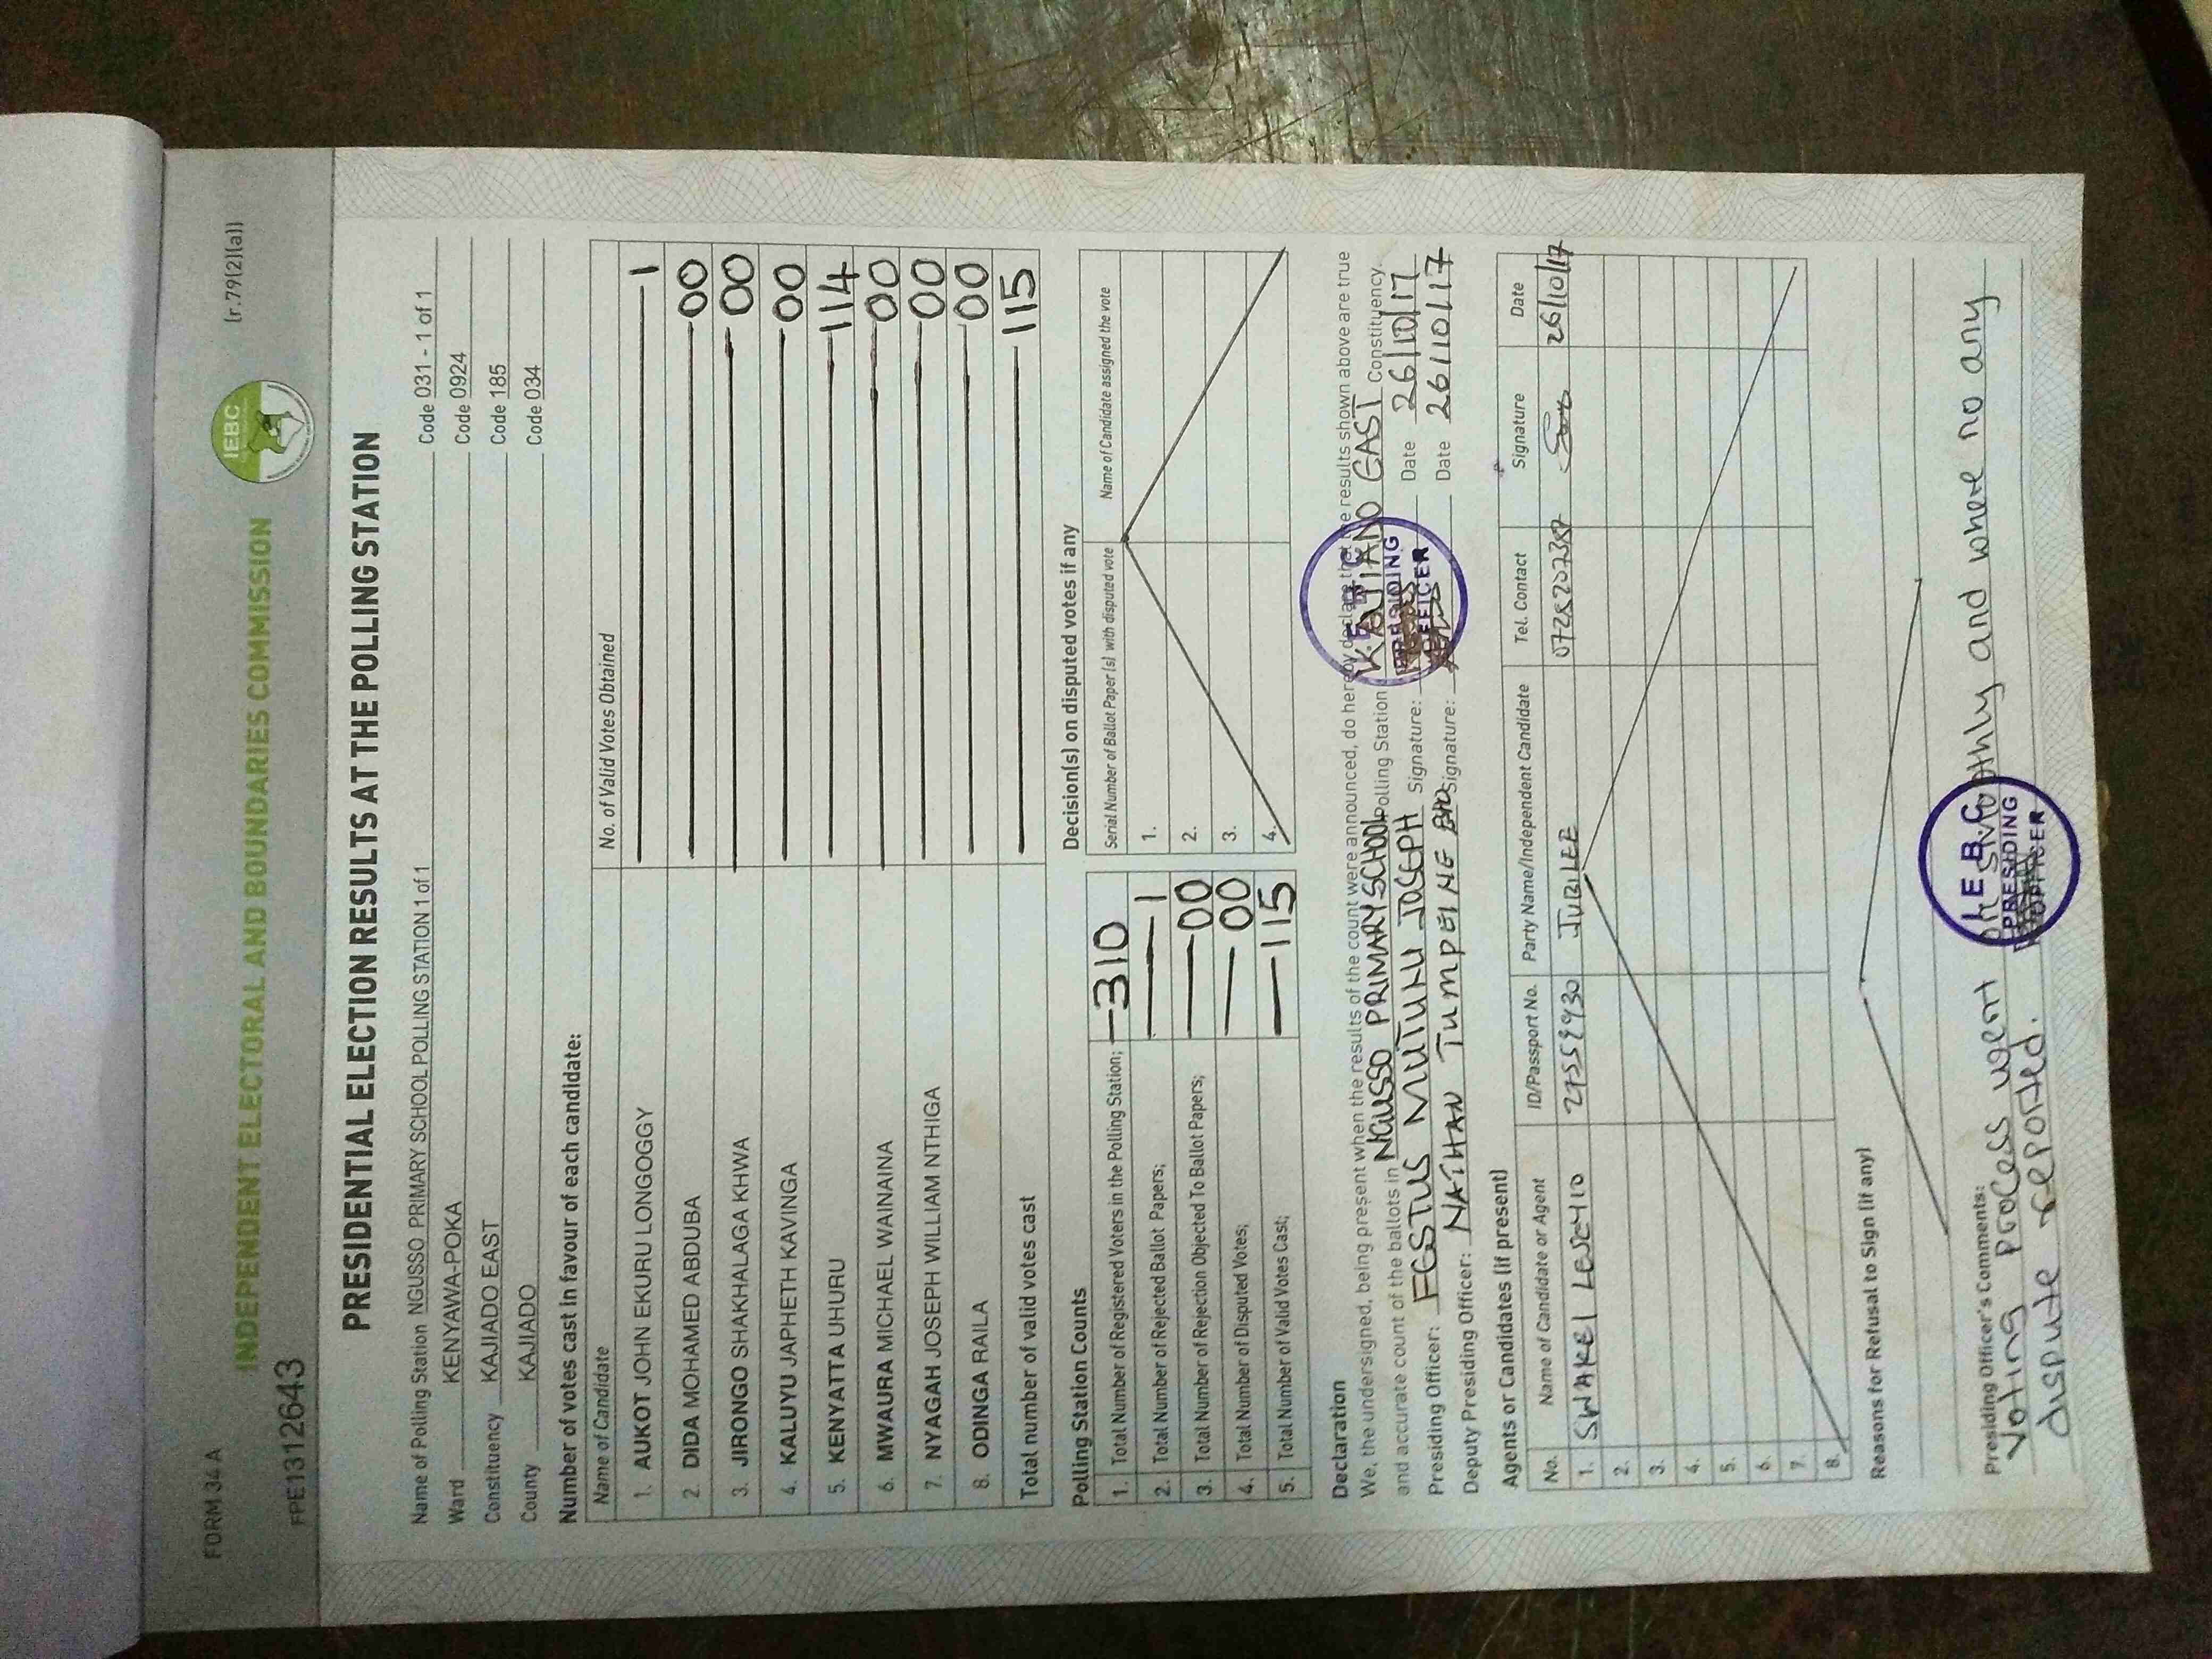 FORM 34 A
(r.79(2)(a))
FPE1312643
INDEPENDENT ELECTORAL AND BOUNDARIES COMMISSION
IEBC
PRESIDENTIAL ELECTION RESULTS AT THE POLLING STATION
Name of Polling Station NGUSSO PRIMARY SCHOOL POLLING STATION 1 of 1 Code 031 - 1 of 1
Ward KENYAWA-POKA Code 0924
Constituency KAJIADO EAST Code 185
County KAJIADO Code 034
Number of votes cast in favour of each candidate:
Name of Candidate No. of Valid Votes Obtained
1. AUKOT JOHN EKURU LONGOGGY 1
2. DIDA MOHAMED ABDUBA 00
3. JIRONGO SHAKHALAGA KHWA 00
4. KALUYU JAPHETH KAVINGA 00
5. KENYATTA UHURU 114
6. MWAURA MICHAEL WAINAINA 00
7. NYAGAH JOSEPH WILLIAM NTHIGA 00
8. ODINGA RAILA 00
Total number of valid votes cast 115
Polling Station Counts
1. Total Number of Registered Voters in the Polling Station; 310
2. Total Number of Rejected Ballot Papers; 1
3. Total Number of Rejection Objected To Ballot Papers; 00
4. Total Number of Disputed Votes; 00
5. Total Number of Valid Votes Cast; 115
Decision(s) on disputed votes if any
Serial Number of Ballot Paper (s) with disputed vote Name of Candidate assigned the vote
1.
2.
3.
4.
Declaration
We, the undersigned, being present when the results of the count were announced, do hereby declare that the results shown above are true
and accurate count of the ballots in NGUSSO PRIMARY SCHOOL Polling Station KAJIADO EAST Constituency.
Presiding Officer: FESTUS MUTUKU JOSEPH Signature: Date 26/10/17
Deputy Presiding Officer: NATHAN TUMPEINE Signature: Date 26/10/17
I.E.B.C
PRESIDING
OFFICER
Agents or Candidates (if present)
No. Name of Candidate or Agent ID/Passport No. Party Name/Independent Candidate Tel. Contact Signature Date
1. JUBILEE 26/10/17
2.
3.
4.
5.
6.
7.
8.
Reasons for Refusal to Sign (if any)
Presiding Officer's Comments:
Voting process went on smoothly and where no any
dispute reported.
I.E.B.C
PRESIDING
OFFICER